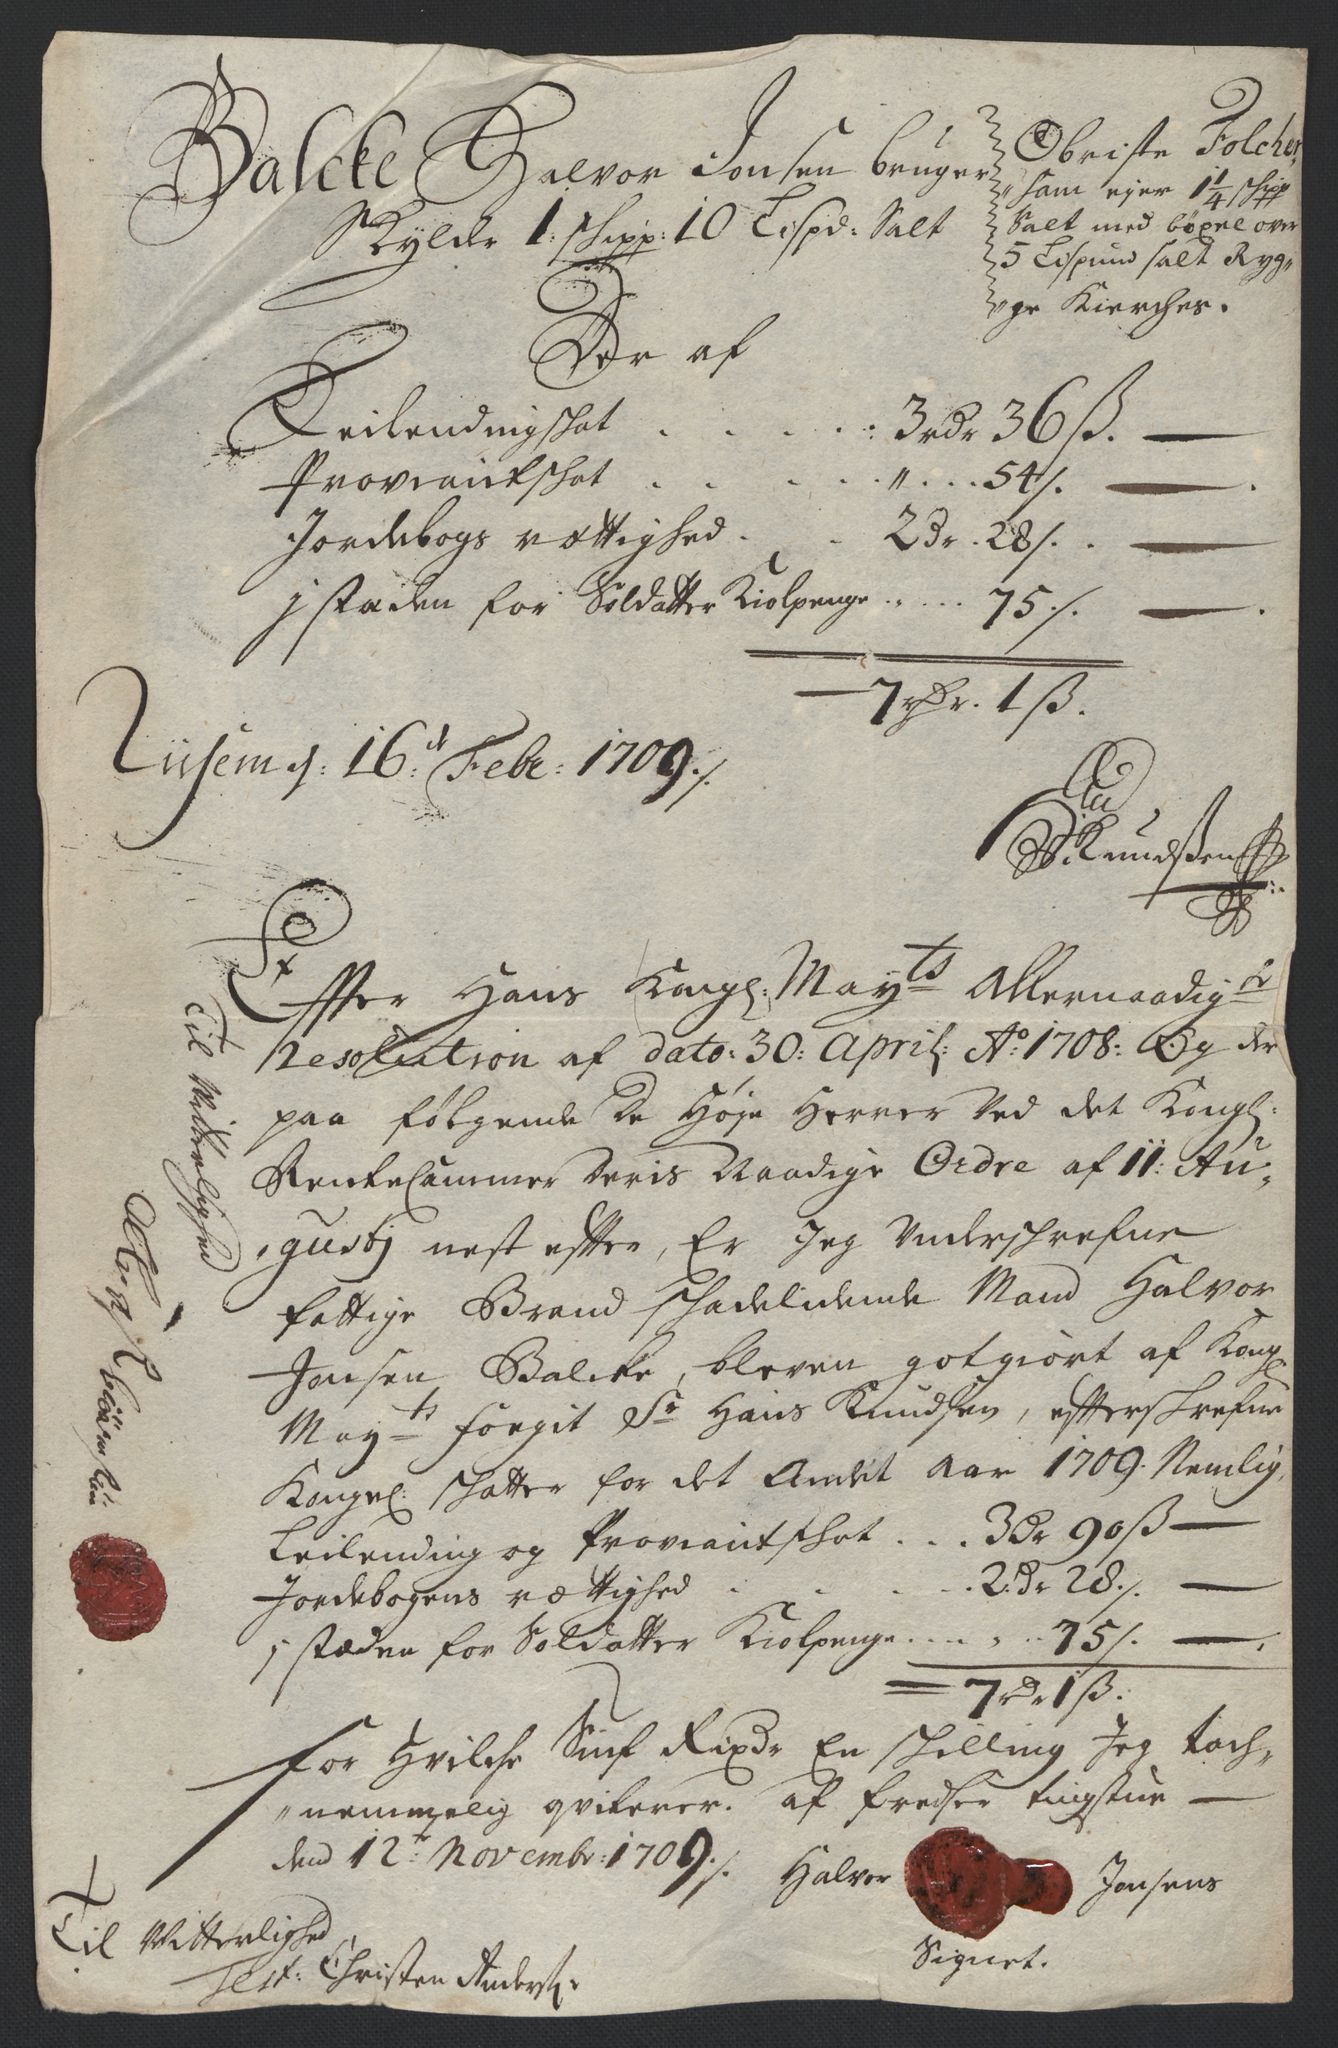 Balcke Halvor Jonsen bruger
Skylder 1: schipp: 10 Lispd: Salt
Obriste Folcher
som ejer 1 1/4 schipp
Salt med böxel over
5 Lispund salt Ryg„
„ge Kierches.
Der af
Leilendingschat . . . . : 3 rdr 36 ß.
Proviantschat . . . . . „ . . . 54 /.
Jordebogs rættighed . . 2 dr. 28 /.
j staden for Soldatter Kiolpenge . . . . . 75 /.
7 rdr. 1 ß.
d: 16: Febr: 1709 ./.
Knudsßen
Effter Hans Kongl: Mayts Allernaadigste
Resolution af dato: 30: April: Ao 1708: Og der
paa følgende De Høje Herrer Ved det Kongl:
Rentecammer Deris Naadige Ordre af 11: Au„
„gustj nest effter, Er Jeg Underschrefne
fattige Brand schadelidende Mand Halvor
Jonsen Balcke, bleven gotgiort af Kongl
Mayts Fogit Sr Hans Knudsen, effterschrefne
Kongel: schatter for det Andet Aar 1709. Nemlig,
Leilending og Proviantschat . . . 3 dr 90 ß
Jordebogens rættighed . . . . . 2. dr 28 ./.
j stæden for Soldatter Kiolpenge . . . . . 75 /.
7 rdr 1 ß.
For Hvilche Siuf Rixdr En schilling Jeg tach„
„nemmelig qviterer. af fredsee tingstue
dend 12te Novembr: 1709 ./.
Halvor Jonsens
Signet.
Til Vitterlighed
Test: Christen Anders:
Til Vitterlighed